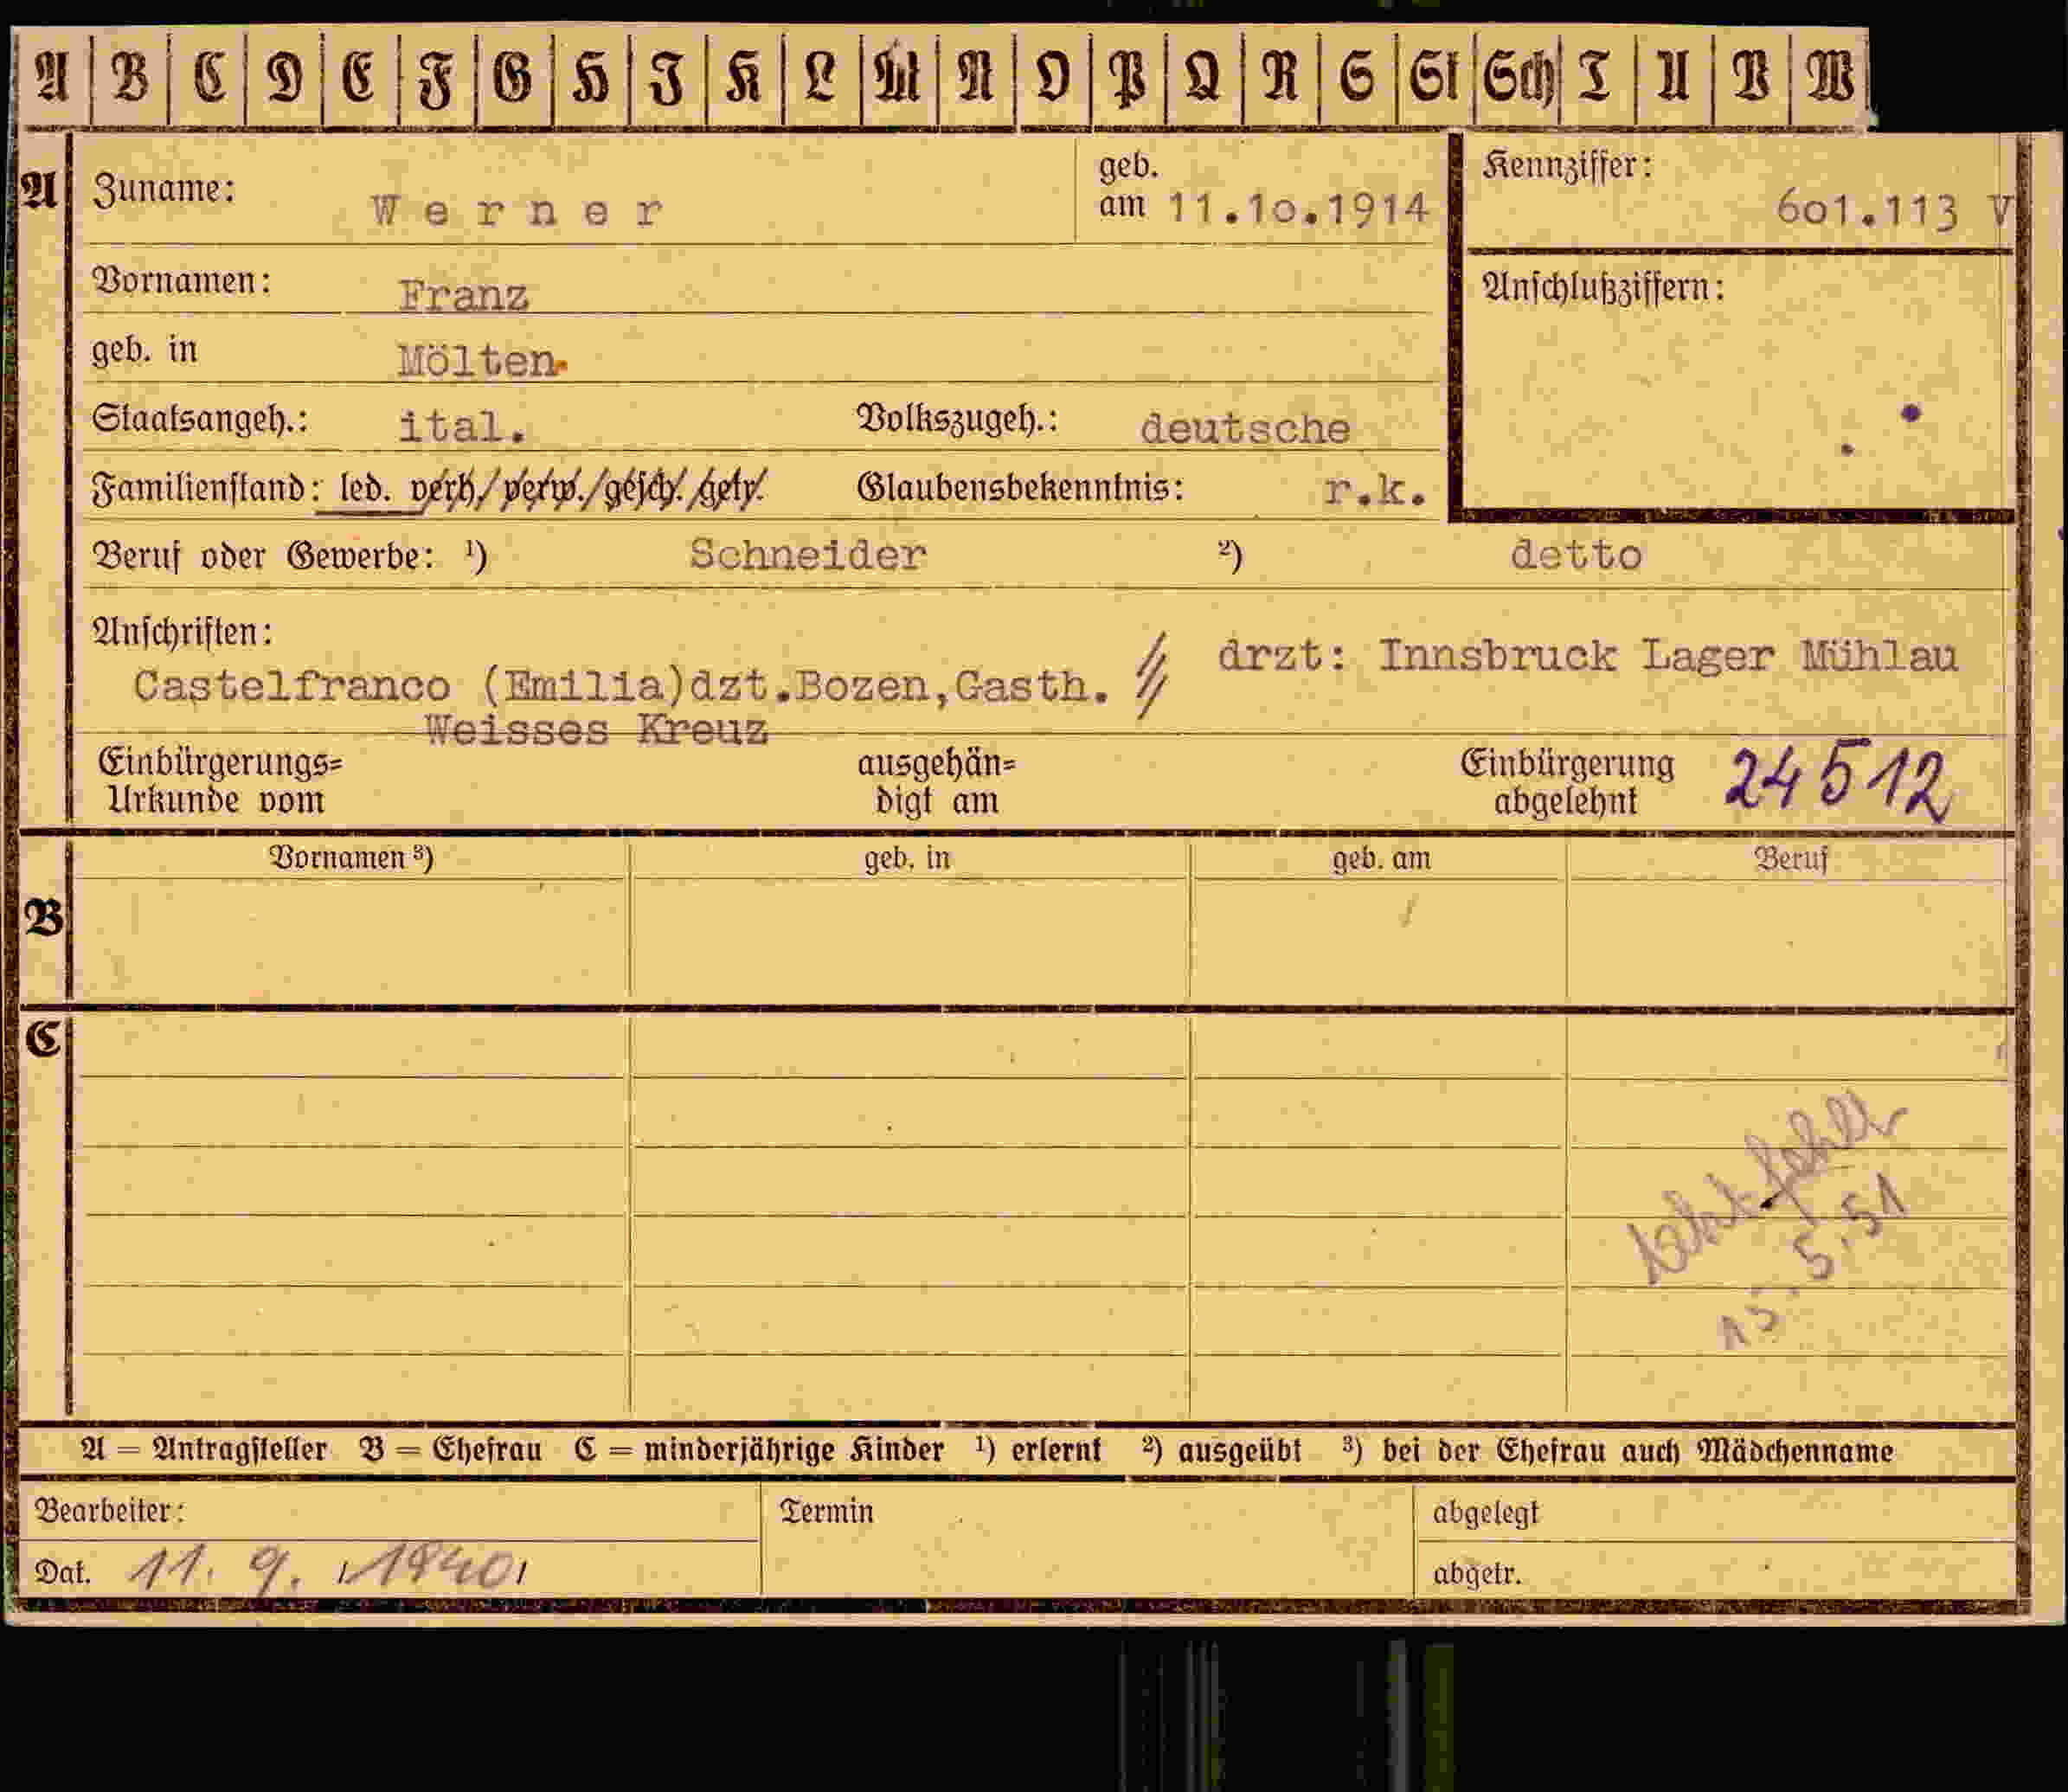 A B C D E F G H I K L M N O P Q R S St Sch T U V W
A Zuname: Werner geb. am 11.1o.1914 Kennziffer: 6o1.113 V
Vornamen: Franz Anschlußziffern:
geb. in Mölten
Staatsangeh.: ital. Volkszugeh.: deutsche
Familienstand: led. verh./verw./gesch./getr. Glaubensbekenntnis: r.k.
Beruf oder Gewerbe: ¹) Schneider ²) detto
Anschriften:
Castelfranco (Emilia)dzt.Bozen,Gasth. // drzt: Innsbruck Lager Mühlau
Weisses Kreuz
Einbürgerungs= ausgehän= Einbürgerung 24512
Urkunde vom digt am abgelehnt
Vornamen ³) geb. in geb. am Beruf
B
C
15.5.51
A = Antragsteller B = Ehefrau C = minderjährige Kinder ¹) erlernt ²) ausgeübt ³) bei der Ehefrau auch Mädchenname
Bearbeiter: Termin abgelegt
Dat. 11. 9. 1940 abgetr.